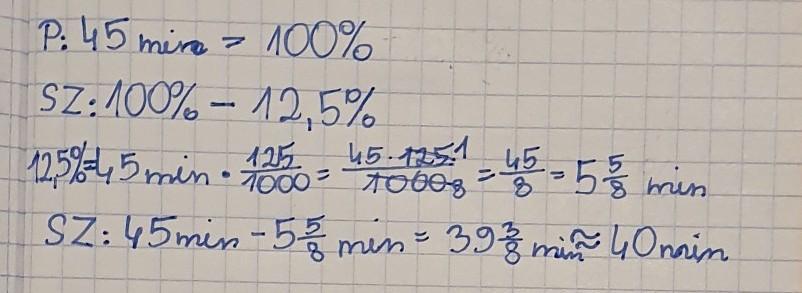 P: 45 min = 100%
SZ: 100% - 12,5%
12,5% = 45 min · 125/1000 = 45 · 125 1/1000 8 = 45/8 = 5 5/8 min
SZ: 45 min - 5 5/8 min = 39 3/8 min ≈ 40 min